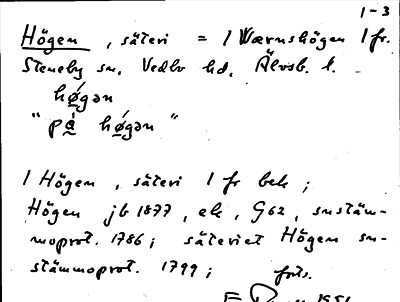 1-3
Högen, säteri = / Wærnshögen 1 fr.
Steneby sn. Vedbo hd. Älvsb. l.
høgən
"på høgən"
/ Högen, säteri 1 fr beb;
Högen jb 1877, ek, G62, snstäm-
moprot. 1786; säteriet Högen sn-
stämmoprot. 1799; forts.